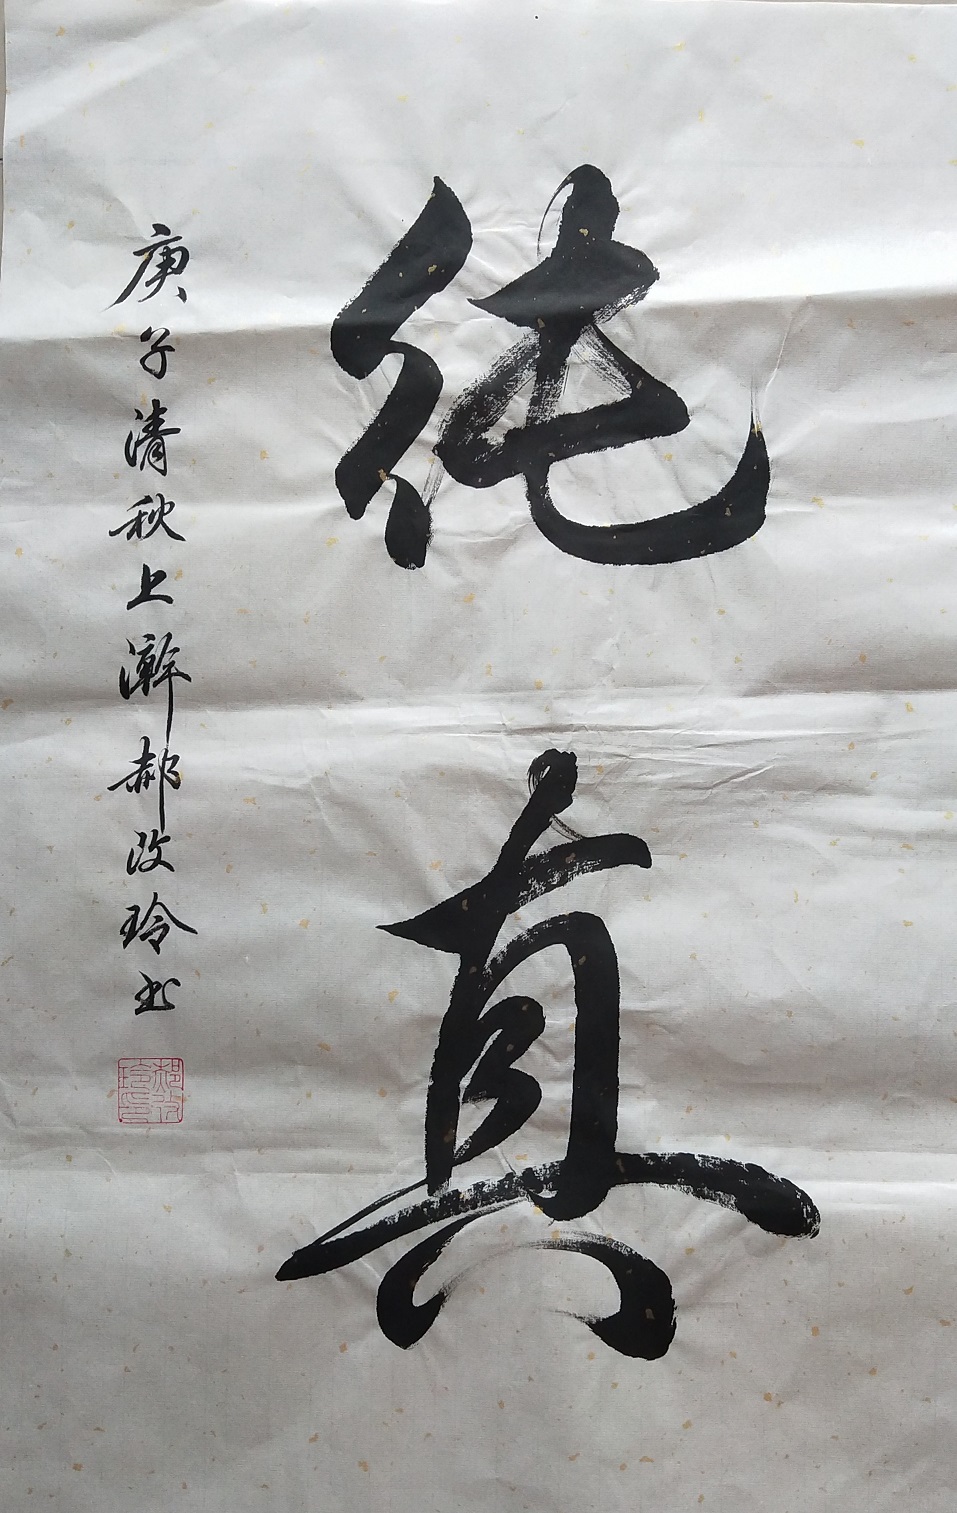 纯真
庚子清秋上澣郝改玲书